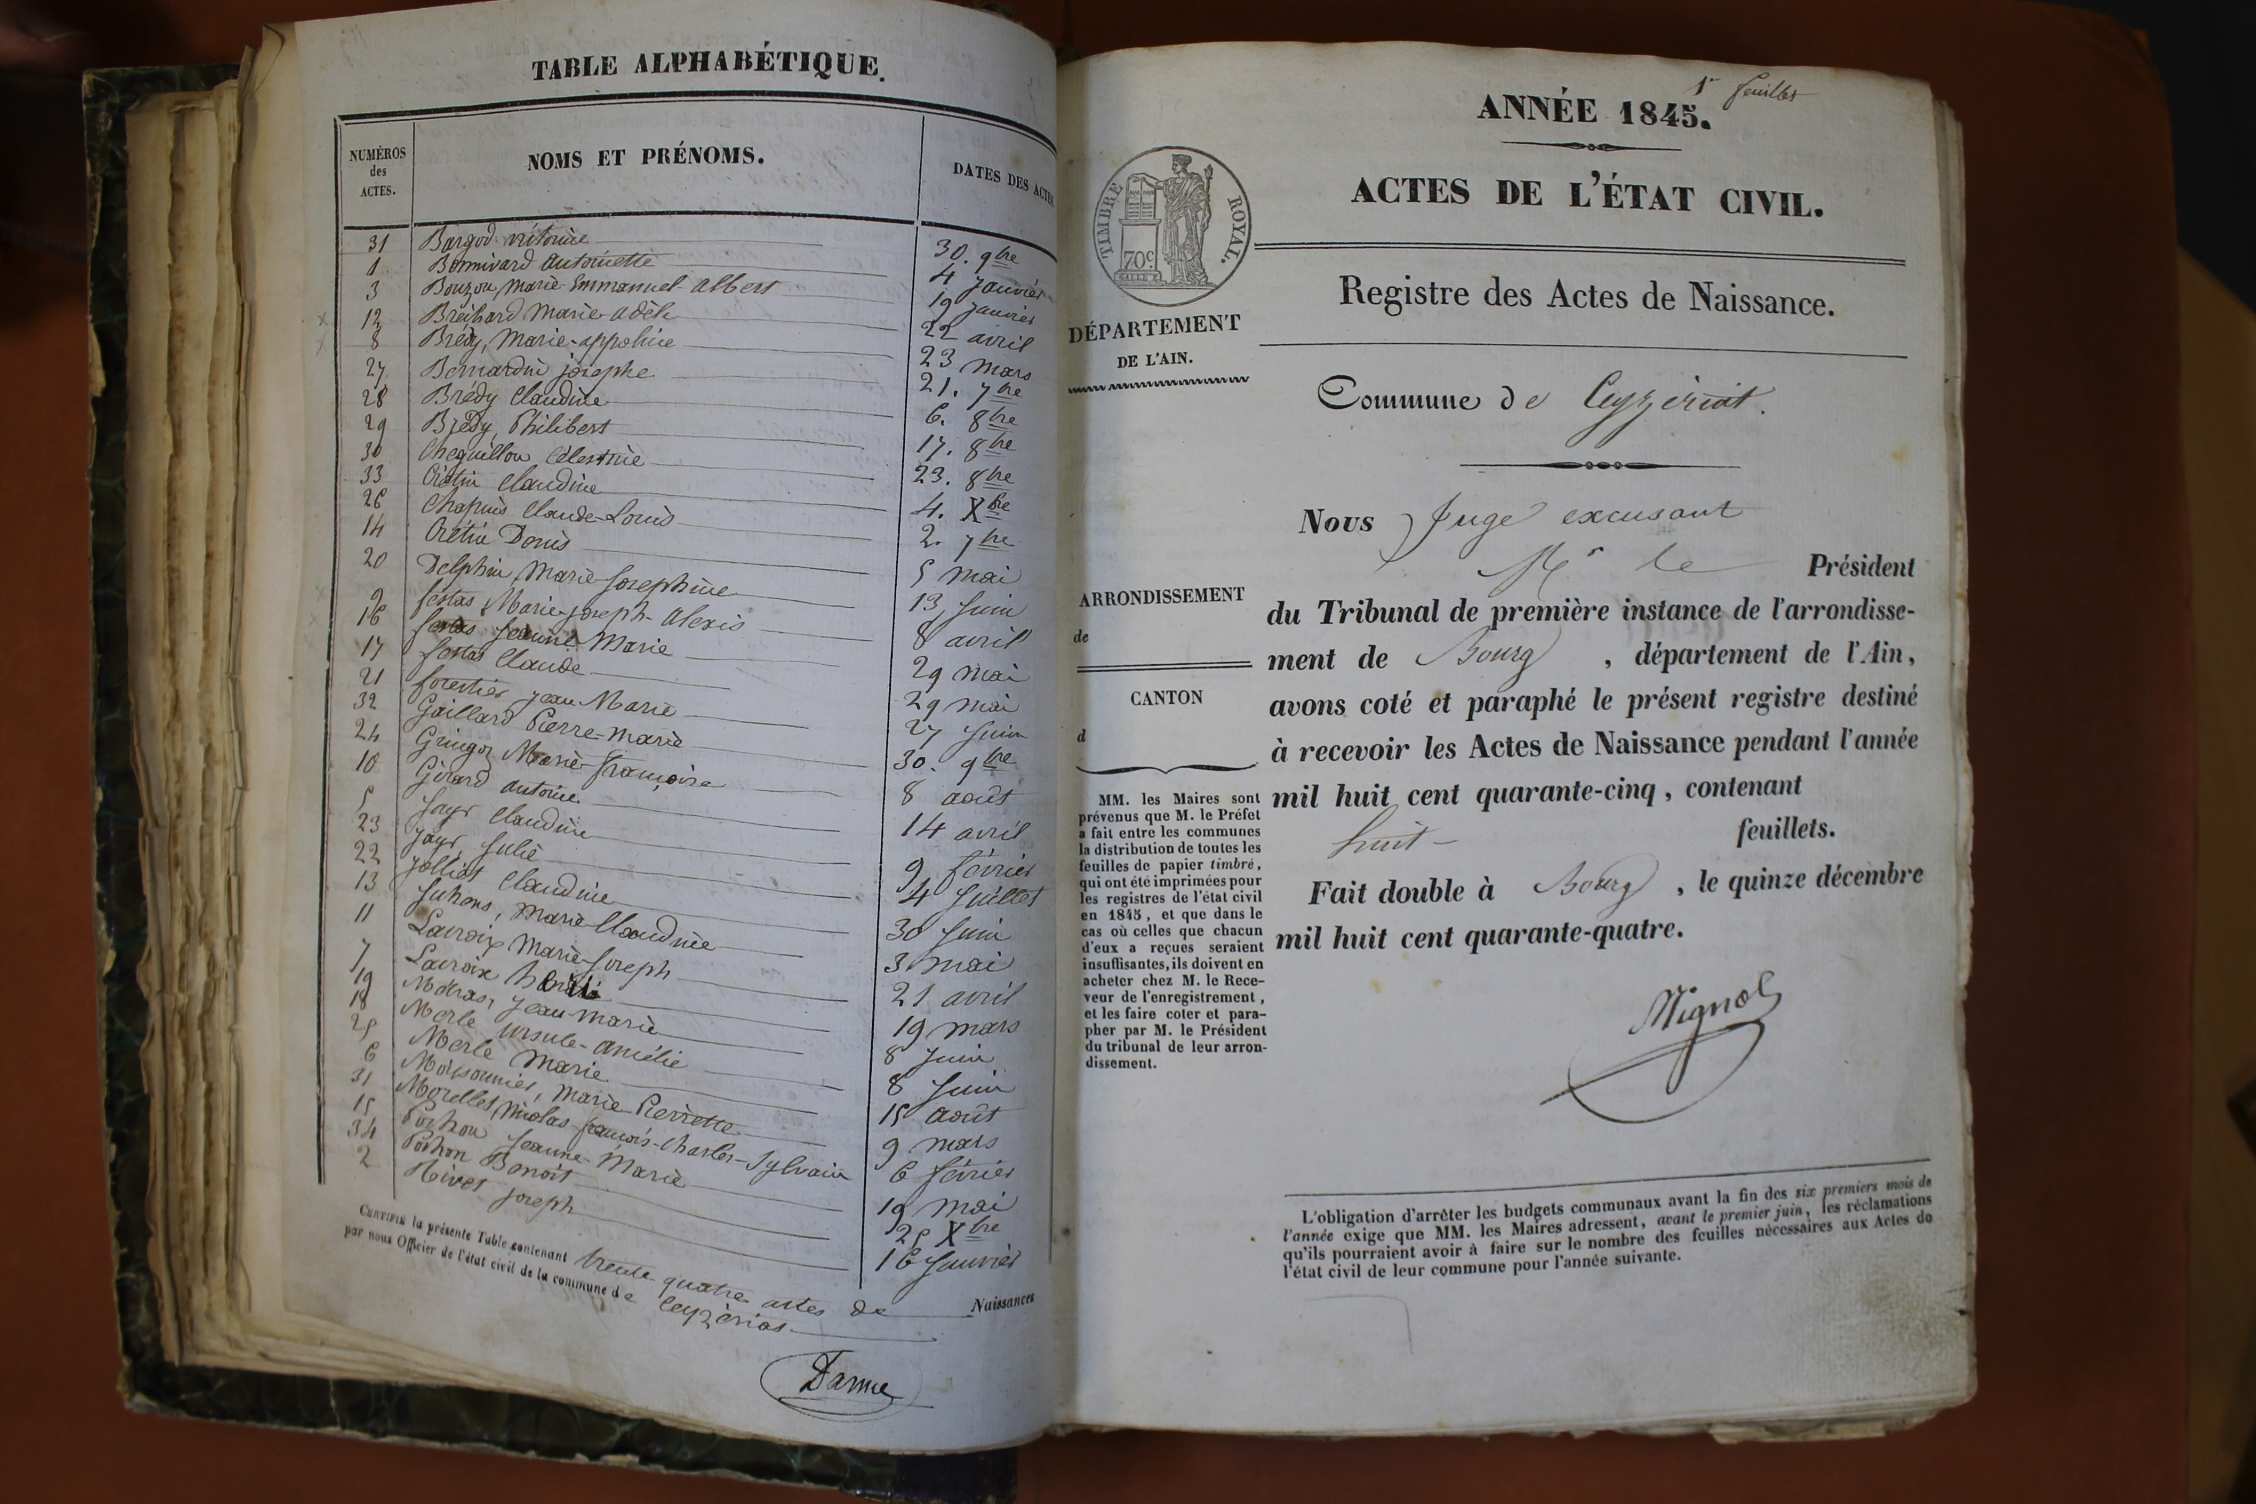 TABLE ALPHABÉTIQUE.
NUMÉROS des ACTES.
NOMS ET PRÉNOMS.
DATES DES ACTES
31 Bargod 30. 9bre
1 Bonnivard antoinette 4 janvier
3 Bouzon, Marie Emmanuel Albert 19 janvier
12 Bréchard Marie adèle 22 avril
8 Brédy, Marie-appoline 23 mars
27 Bernardin josephe 21. 7bre
28 Brédy Claudine 6. 8bre
29 Brédy, Philibert 17. 8bre
30 Célestine 23. 8bre
33 Crétin Claudine 4. Xbre
26 Chapuis Claude-Louis 2. 7bre
14 Crétin Denis 5 mai
20 Delphin, Marie-Josephine 13 juin
9 festas, Marie-joseph-alexis 8 avril
16 festas jeanne Marie 29 mai
17 festas Claude 29 mai
21 forestier jean Marie 27 juin
32 Gaillard Pierre-marie 30. 9bre
24 Gringoz Marie-françoise 8 août
10 Girard antoine 14 avril
5 Jayr Claudine 9 février
23 Jayr Julie 4 juillet
22 Jolliet Claudine 30 juin
13 Juhans, Marie Claudine 3 mai
11 Lacroix Marie-joseph 21 avril
7 Lacroix 19 mars
19 Moiras, jean-marie 8 juin
18 Merle Ursule-amélie 8 juin
25 Merle Marie 15 août
6 Moissonnier, Marie Pierrette 9 mars
31 Morellet, Nicolas-françois-Charles-Sylvain 6 février
15 Pochon jeanne-Marie 19 mai
34 Pochon Benoit 25 Xbre
2 Rivet joseph 16 janvier
CERTIFIÉ la présente Table contenant trente quatre actes de Naissances
par nous Officier de l'état civil de la commune de Ceyzériat
Darme
1er feuillet
ANNÉE 1845.
ACTES DE L'ÉTAT CIVIL.
TIMBRE ROYAL.
70c.
Registre des Actes de Naissance.
DÉPARTEMENT
DE L'AIN.
Commune de Ceyzériat.
Nous Juge excusant
Mr le Président
ARRONDISSEMENT
de
CANTON
d
du Tribunal de première instance de l'arrondisse-
ment de Bourg, département de l'Ain,
avons coté et paraphé le présent registre destiné
à recevoir les Actes de Naissance pendant l'année
mil huit cent quarante-cinq, contenant
huit feuillets.
Fait double à Bourg, le quinze décembre
mil huit cent quarante-quatre.
Mignot
MM. les Maires sont
prévenus que M. le Préfet
a fait entre les communes
la distribution de toutes les
feuilles de papier timbré,
qui ont été imprimées pour
les registres de l'état civil
en 1845, et que dans le
cas où celles que chacun
d'eux a reçues seraient
insuffisantes, ils doivent en
acheter chez M. le Rece-
veur de l'enregistrement,
et les faire coter et para-
pher par M. le Président
du tribunal de leur arron-
dissement.
L'obligation d'arrêter les budgets communaux avant la fin des six premiers mois de
l'année exige que MM. les Maires adressent, avant le premier juin, les réclamations
qu'ils pourraient avoir à faire sur le nombre des feuilles nécessaires aux Actes de
l'état civil de leur commune pour l'année suivante.